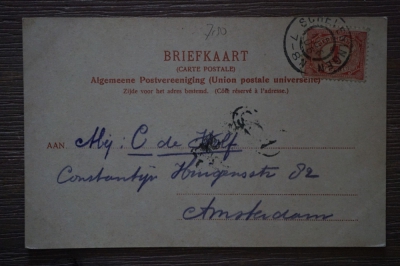 7,50
SCHEVENINGEN
BRIEFKAART
(CARTE POSTALE)
Algemeene Postvereeniging (Union postale universelle)
Zijde voor het adres bestemd. (Côté réservé à l'adresse.)
AAN Mij: C de Wolf
Constantijn Huygensstr 82
Amsterdam